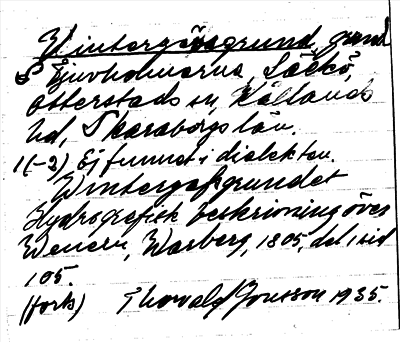 Vintergäsgrund, grund
S Ejurholmarna, Läckö,
Otterstads sn, Kållands
hd, Skaraborgs län.
1(-2) Ej funnet i dialekten.
Wintergasgrundet
Hydrografisk beskrivning över
Wenern, Warberg, 1805, del 1 sid
105.
(forts) Thorvald Jonsson 1935.